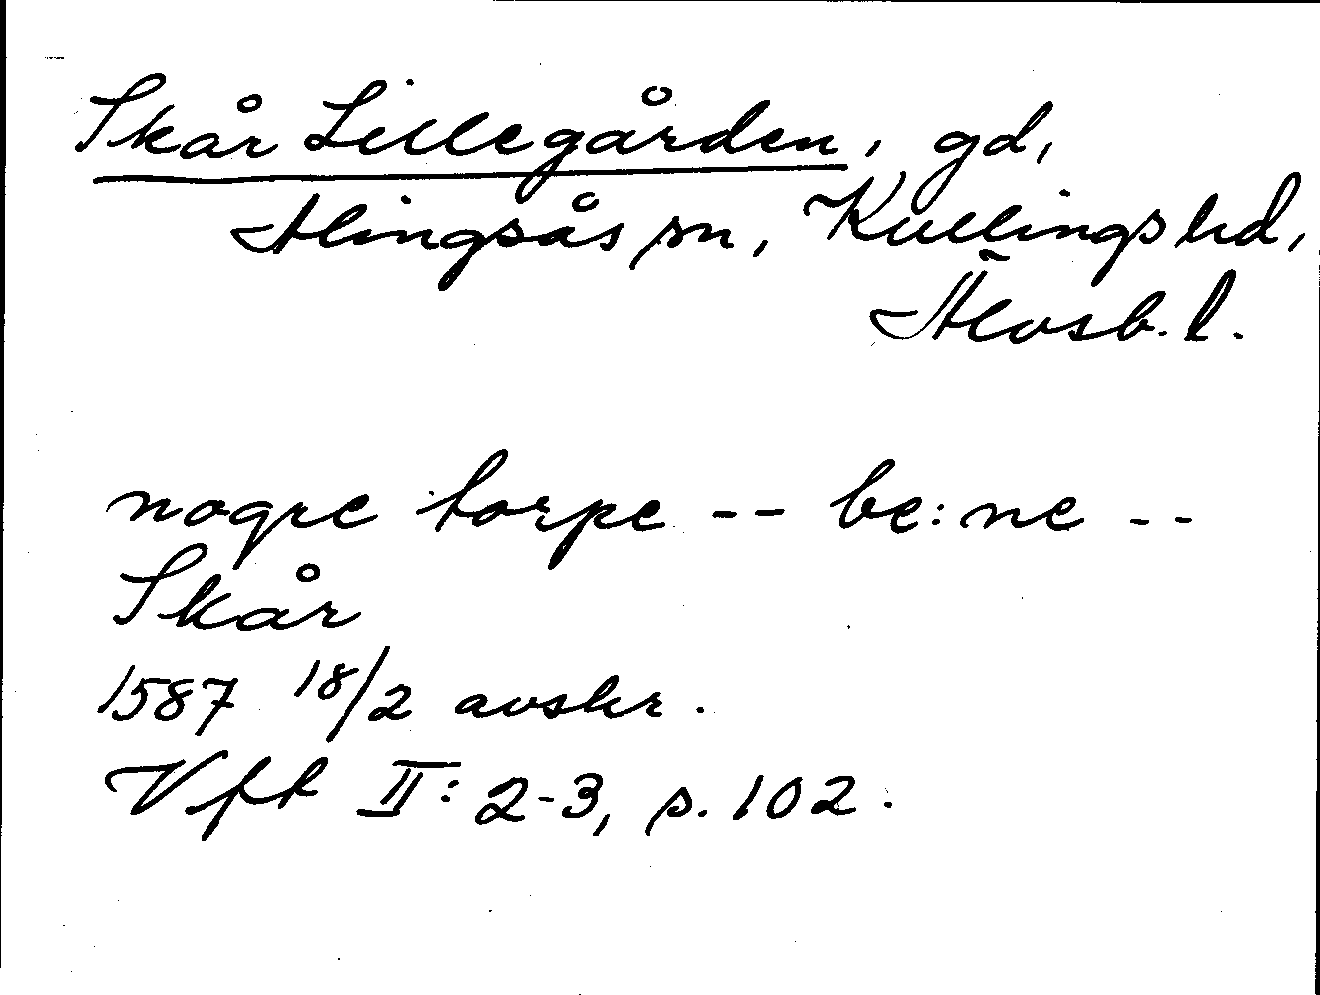 Skår Lillegården, gd,
Alingsås sn, Kullings hd,
Älvsb. l.
nogre torpe -- be:ne --
Skår
1587 18/2 avskr.
Vft II: 2-3, s. 102.